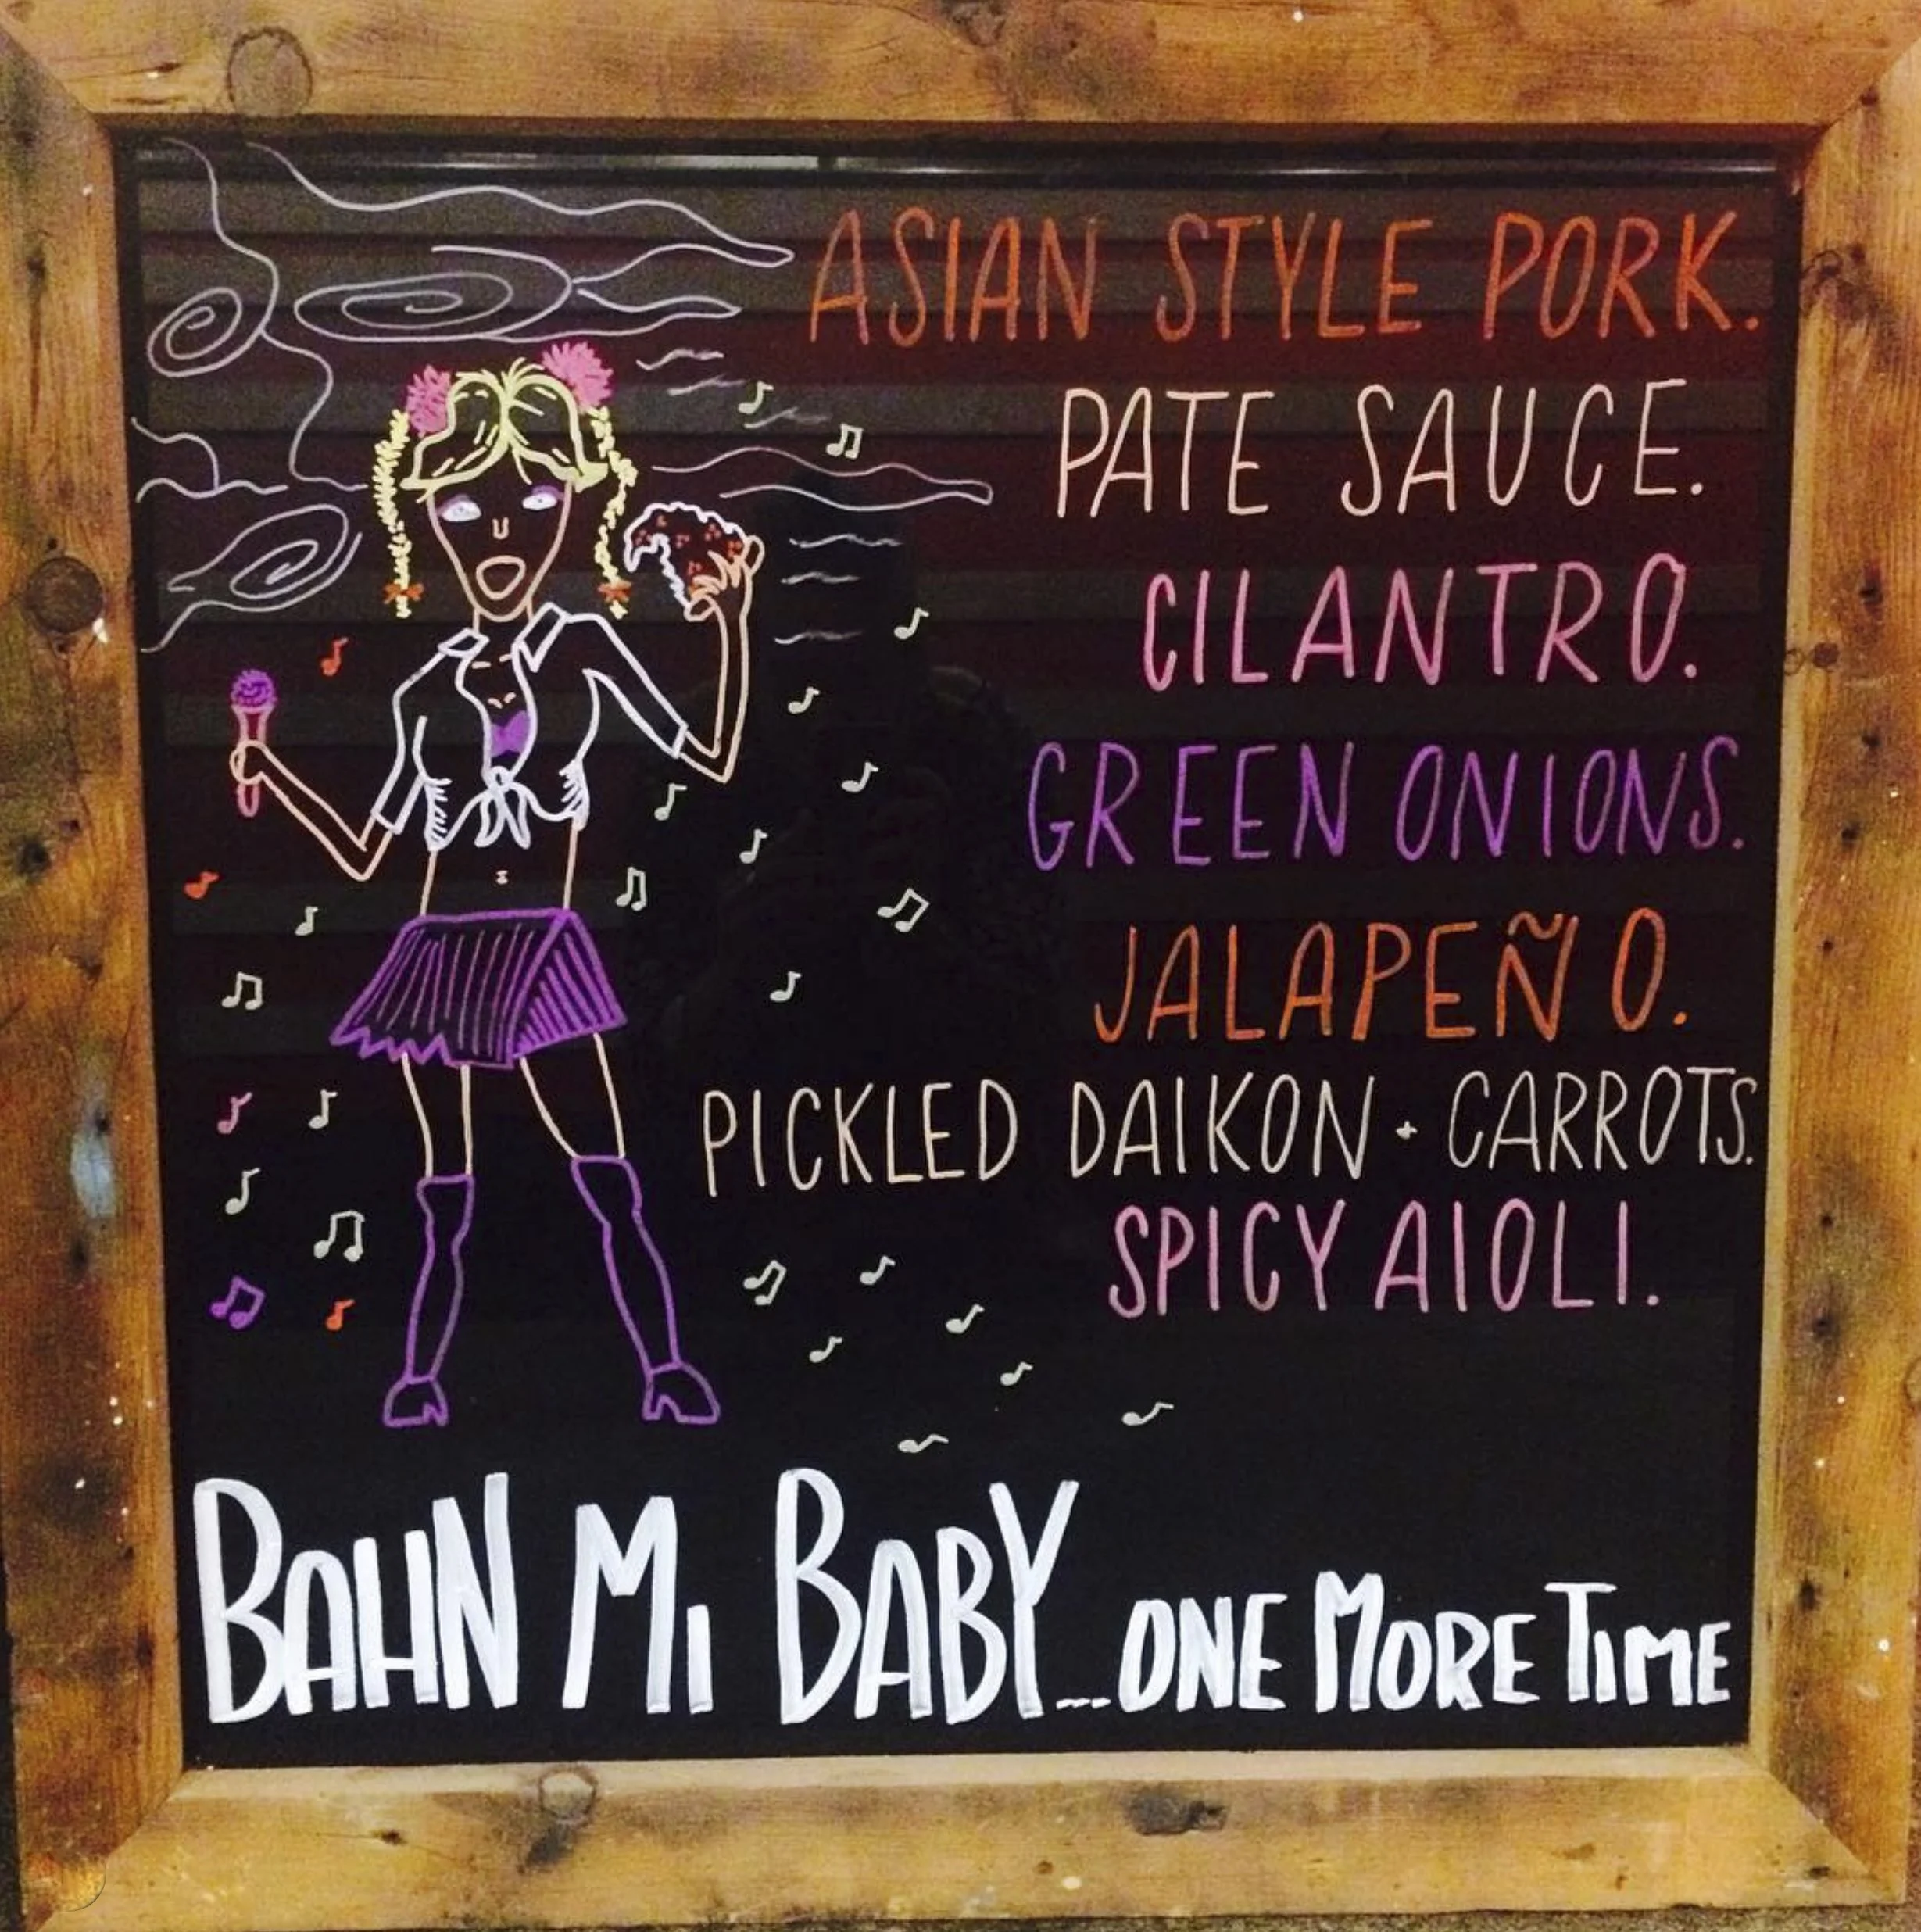 ASIAN STYLE PORK.
PATE SAUCE.
CILANTRO.
GREEN ONIONS.
JALAPEÑO.
PICKLED DAIKON + CARROTS.
SPICY AIOLI.
BAHN MI BABY...ONE MORE TIME